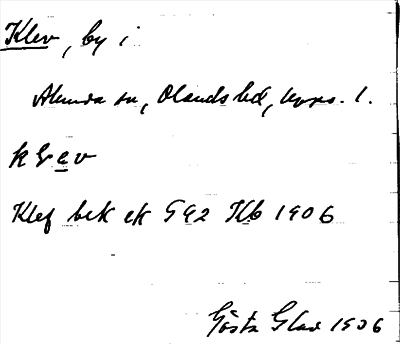 Klev, by i
Alunda sn, Olands hd, Upps. l.
klev
Klef bek ek 592 Kb 1906
Gösta Glad 1906